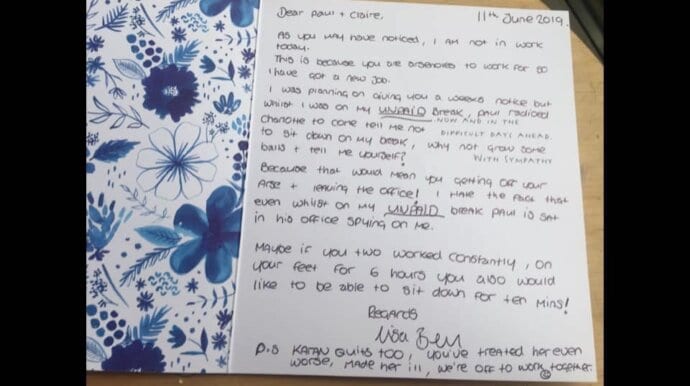 Dear Paul + Claire, 11th June 2019.
As you may have noticed, I am not in work
today.
This is because you are arseholes to work for so
I have got a new job.
I was planning on giving you a weeks notice but
whilst I was on my UNPAID break, Paul radioed
Charlotte to come tell me not
NOW AND IN THE
DIFFICULT DAYS AHEAD.
WITH SYMPATHY
to sit down on my break, why not grow some
balls + tell me yourself?
Because that would mean you getting off your
arse + leaving the office! I hate the fact that
even whilst on my UNPAID break Paul is sat
in his office spying on me.
Maybe if you two worked constantly, on
your feet for 6 hours you also would
like to be able to sit down for ten mins!
Regards
Lisa
P.S KATAN QUITS TOO! you've treated her even
worse, made her ill, we're off to work together.